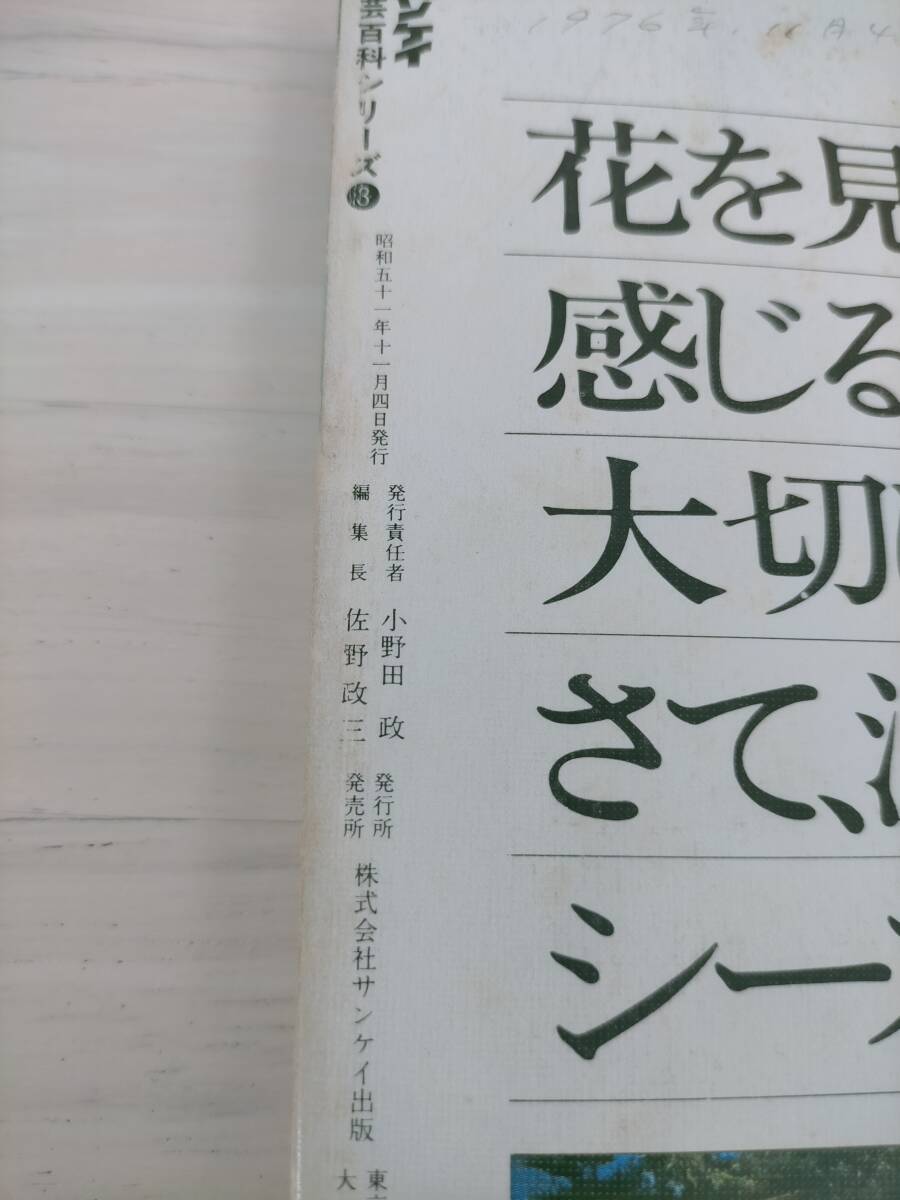 ンケイ
芸百科シリーズ⑱
昭和五十一年十一月四日発行
発行責任者 小野田 政
編集長 佐野政三
発行所
発売所
株式会社サンケイ出版
東
大
1976年.11月4
花を見
感じる
大切
さて、
シー